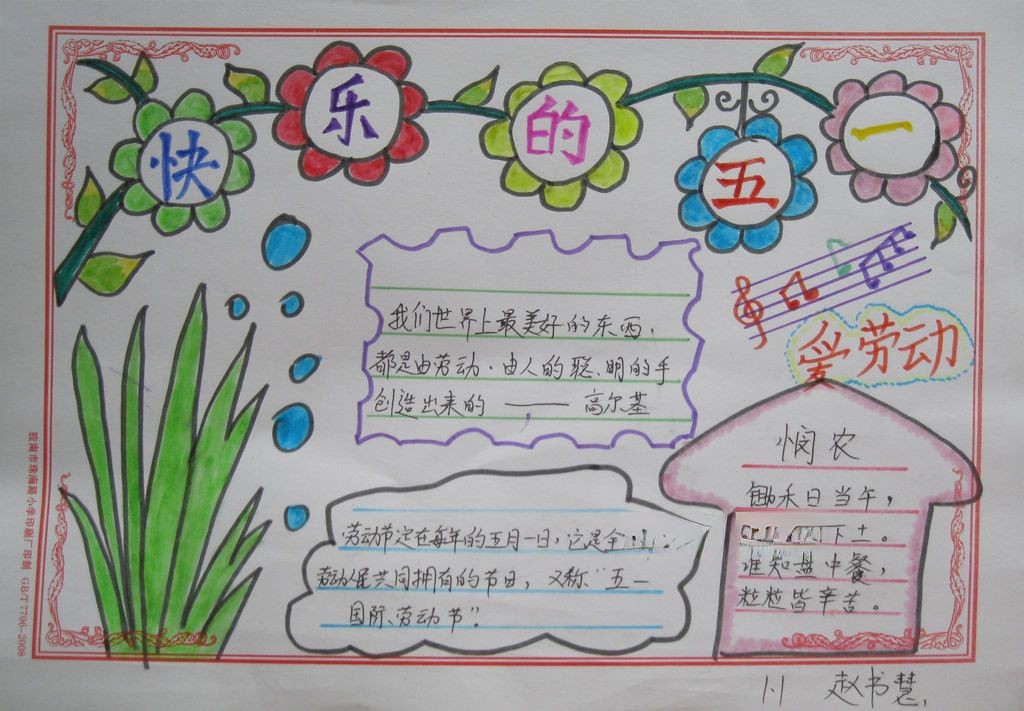 快乐的五一
我们世界上最美好的东西,
都是由劳动.由人的聪明的手
创造出来的——高尔基
爱劳动
悯农
锄禾日当午,
下土。
谁知盘中餐,
粒粒皆辛苦。
劳动节定在每年的五月一日,它是全
劳动人民共同拥有的节日,又称“五一
国际劳动节”.
胶南市珠海路小学印刷厂印制 GB/T 7706-2008
1.1 赵书慧.